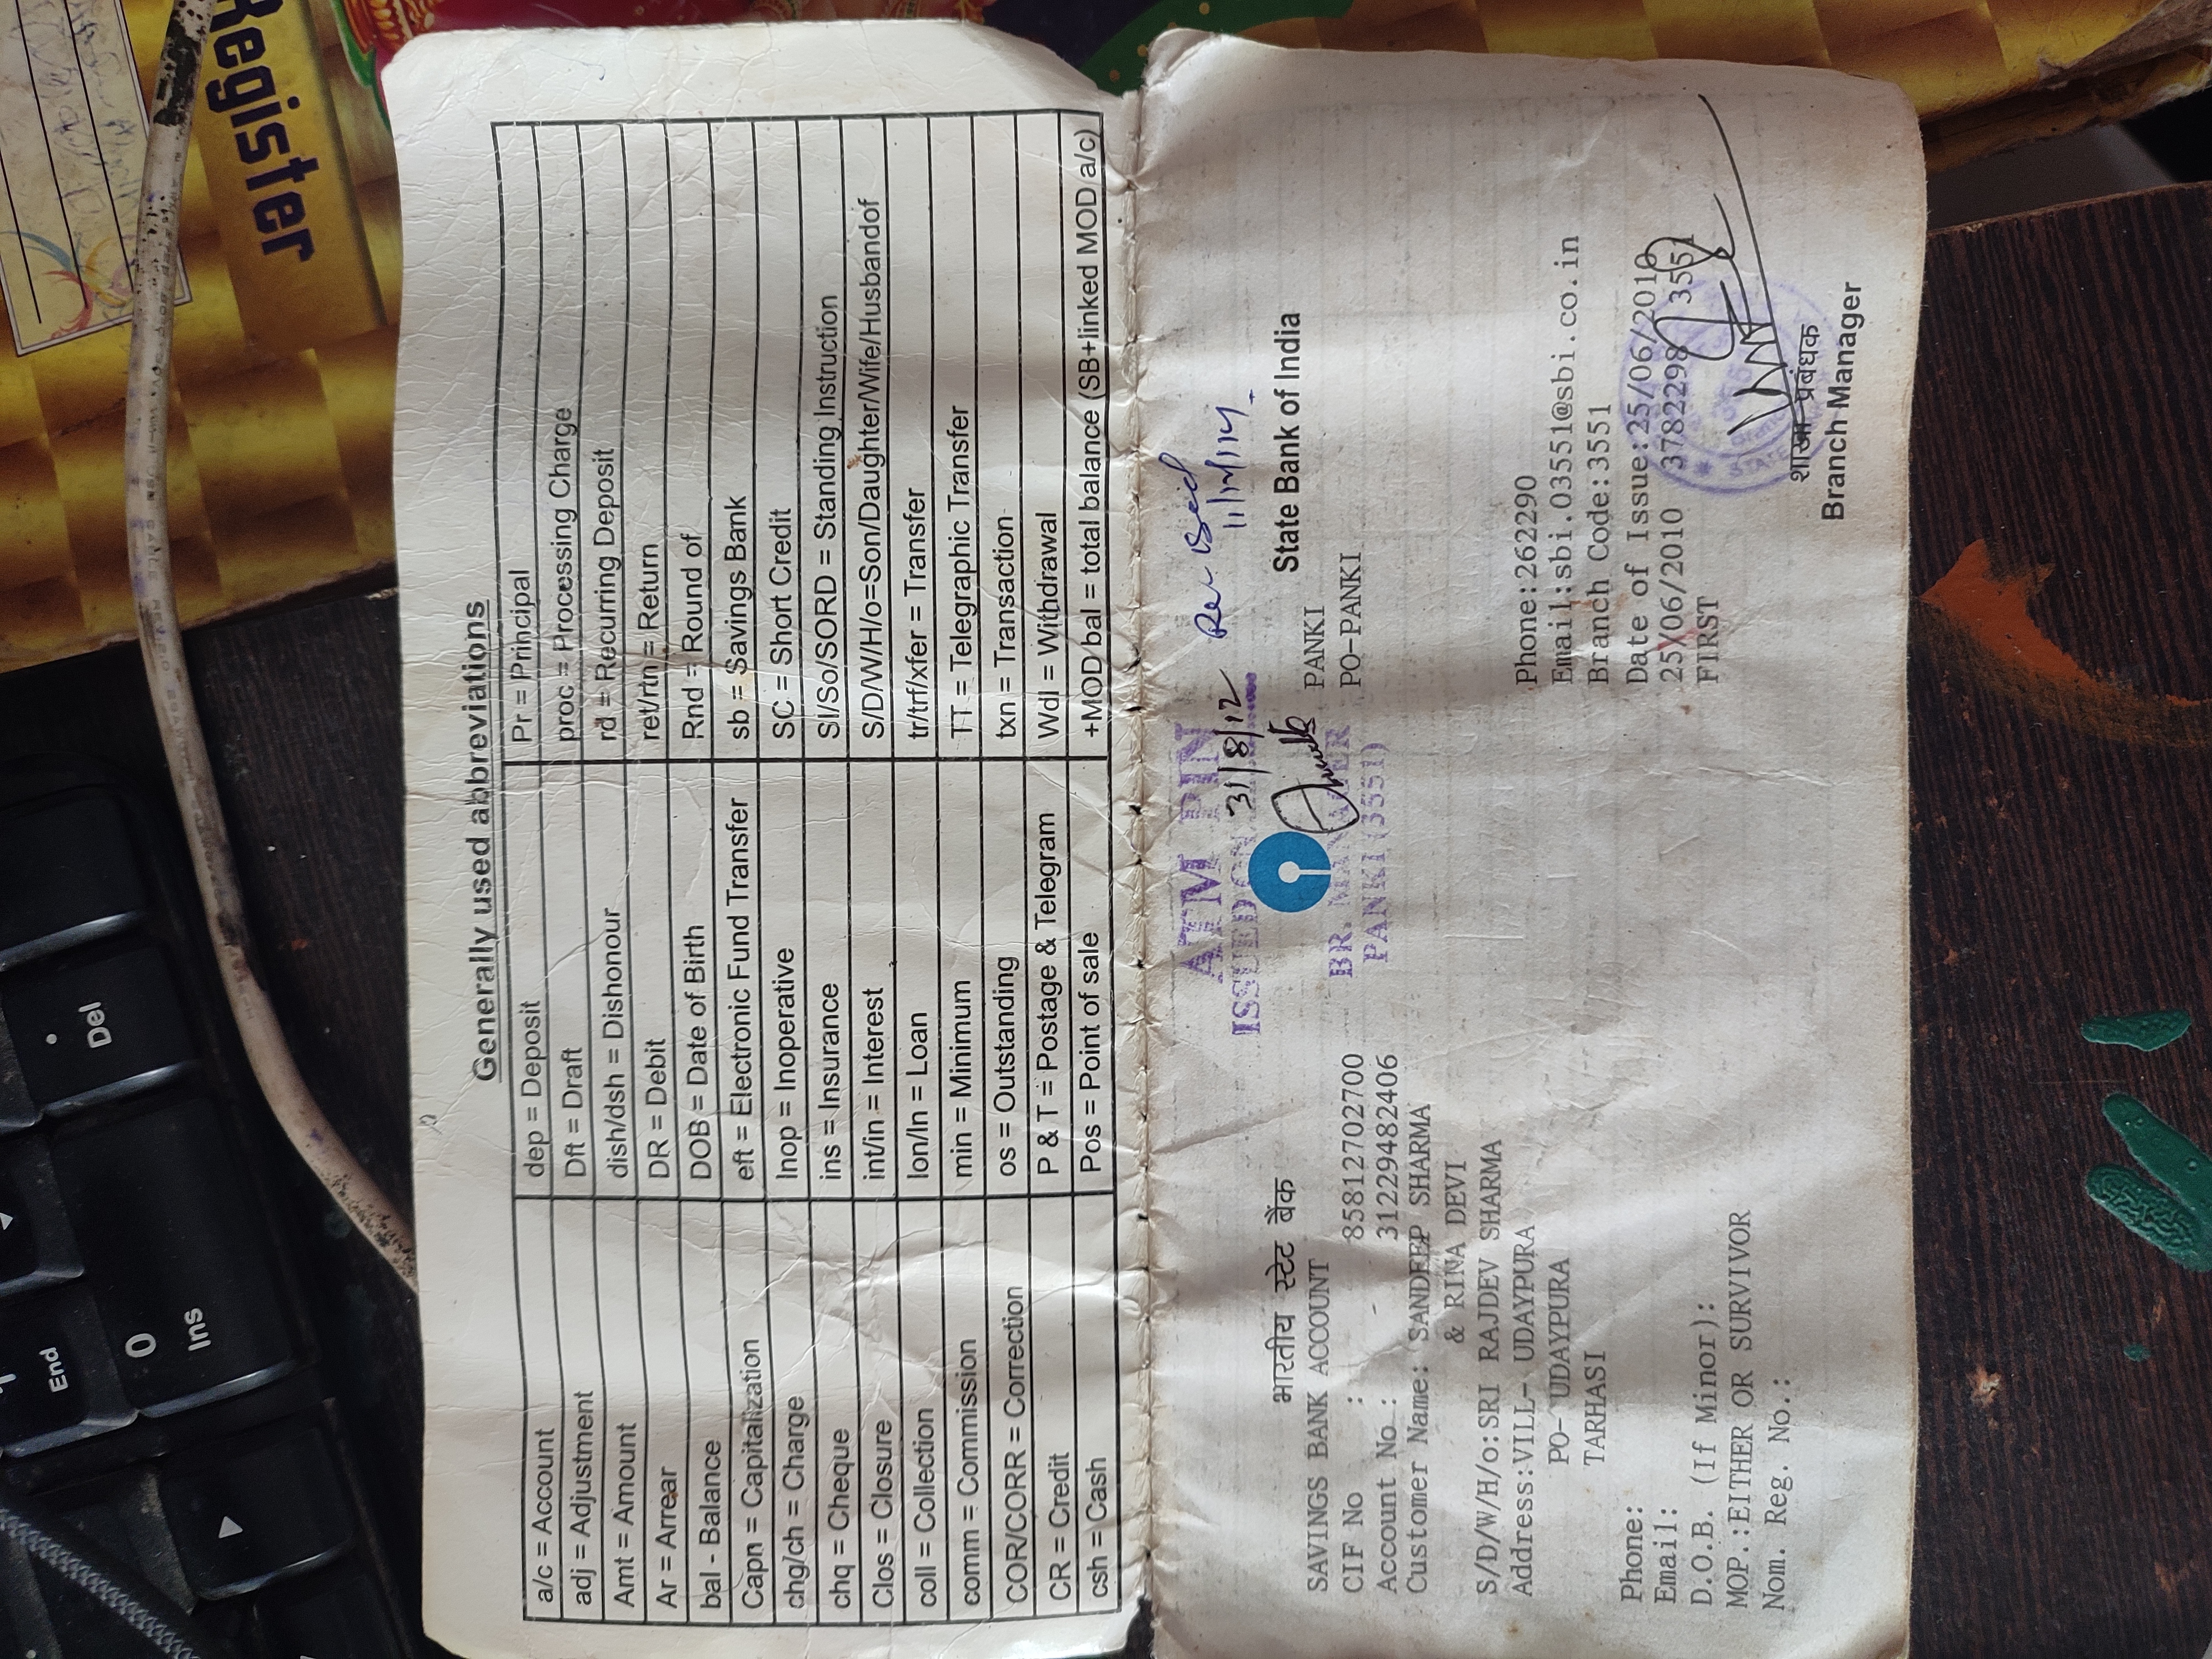 Register
Del
End
0
Ins
Generally used abbreviations
a/c = Account	dep = Deposit	Pr = Principal
adj = Adjustment	Dft = Draft	proc = Processing Charge
Amt = Amount	dish/dsh = Dishonour	rd = Recurring Deposit
Ar = Arrear	DR = Debit	ret/rtn = Return
bal - Balance	DOB = Date of Birth	Rnd = Round of
Capn = Capitalization	eft = Electronic Fund Transfer	sb = Savings Bank
chg/ch = Charge	Inop = Inoperative	SC = Short Credit
chq = Cheque	ins = Insurance	SI/So/SORD = Standing Instruction
Clos = Closure	int/in = Interest	S/D/W/H/o=Son/Daughter/Wife/Husbandof
coll = Collection	lon/ln = Loan	tr/trf/xfer = Transfer
comm = Commission	min = Minimum	TT = Telegraphic Transfer
COR/CORR = Correction	os = Outstanding	txn = Transaction
CR = Credit	P & T = Postage & Telegram	Wdl = Withdrawal
csh = Cash	Pos = Point of sale	+MOD bal = total balance (SB+linked MOD a/c)
ATM PIN
ISSUED ON 31/8/12
BR. MANAGER
PANKI (3551)
भारतीय स्टेट बैंक
State Bank of India
SAVINGS BANK ACCOUNT
PANKI
CIF No : 85812702700
PO-PANKI
Account No : 31229482406
Customer Name: SANDEEP SHARMA
& RINA DEVI
S/D/W/H/o:SRI RAJDEV SHARMA
Address:VILL- UDAYPURA
PO- UDAYPURA
TARHASI
Phone:262290
Email:sbi.03551@sbi.co.in
Branch Code:3551
Phone:
Date of Issue:25/06/2010
Email:
25/06/2010 37822298 3551
D.O.B. (If Minor):
FIRST
MOP.:EITHER OR SURVIVOR
Nom. Reg. No.:
शाखा प्रबंधक
Branch Manager